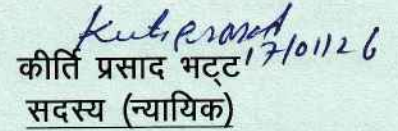 Kirtiprasad
17/01/26
कीर्ति प्रसाद भट्ट
सदस्य (न्यायिक)